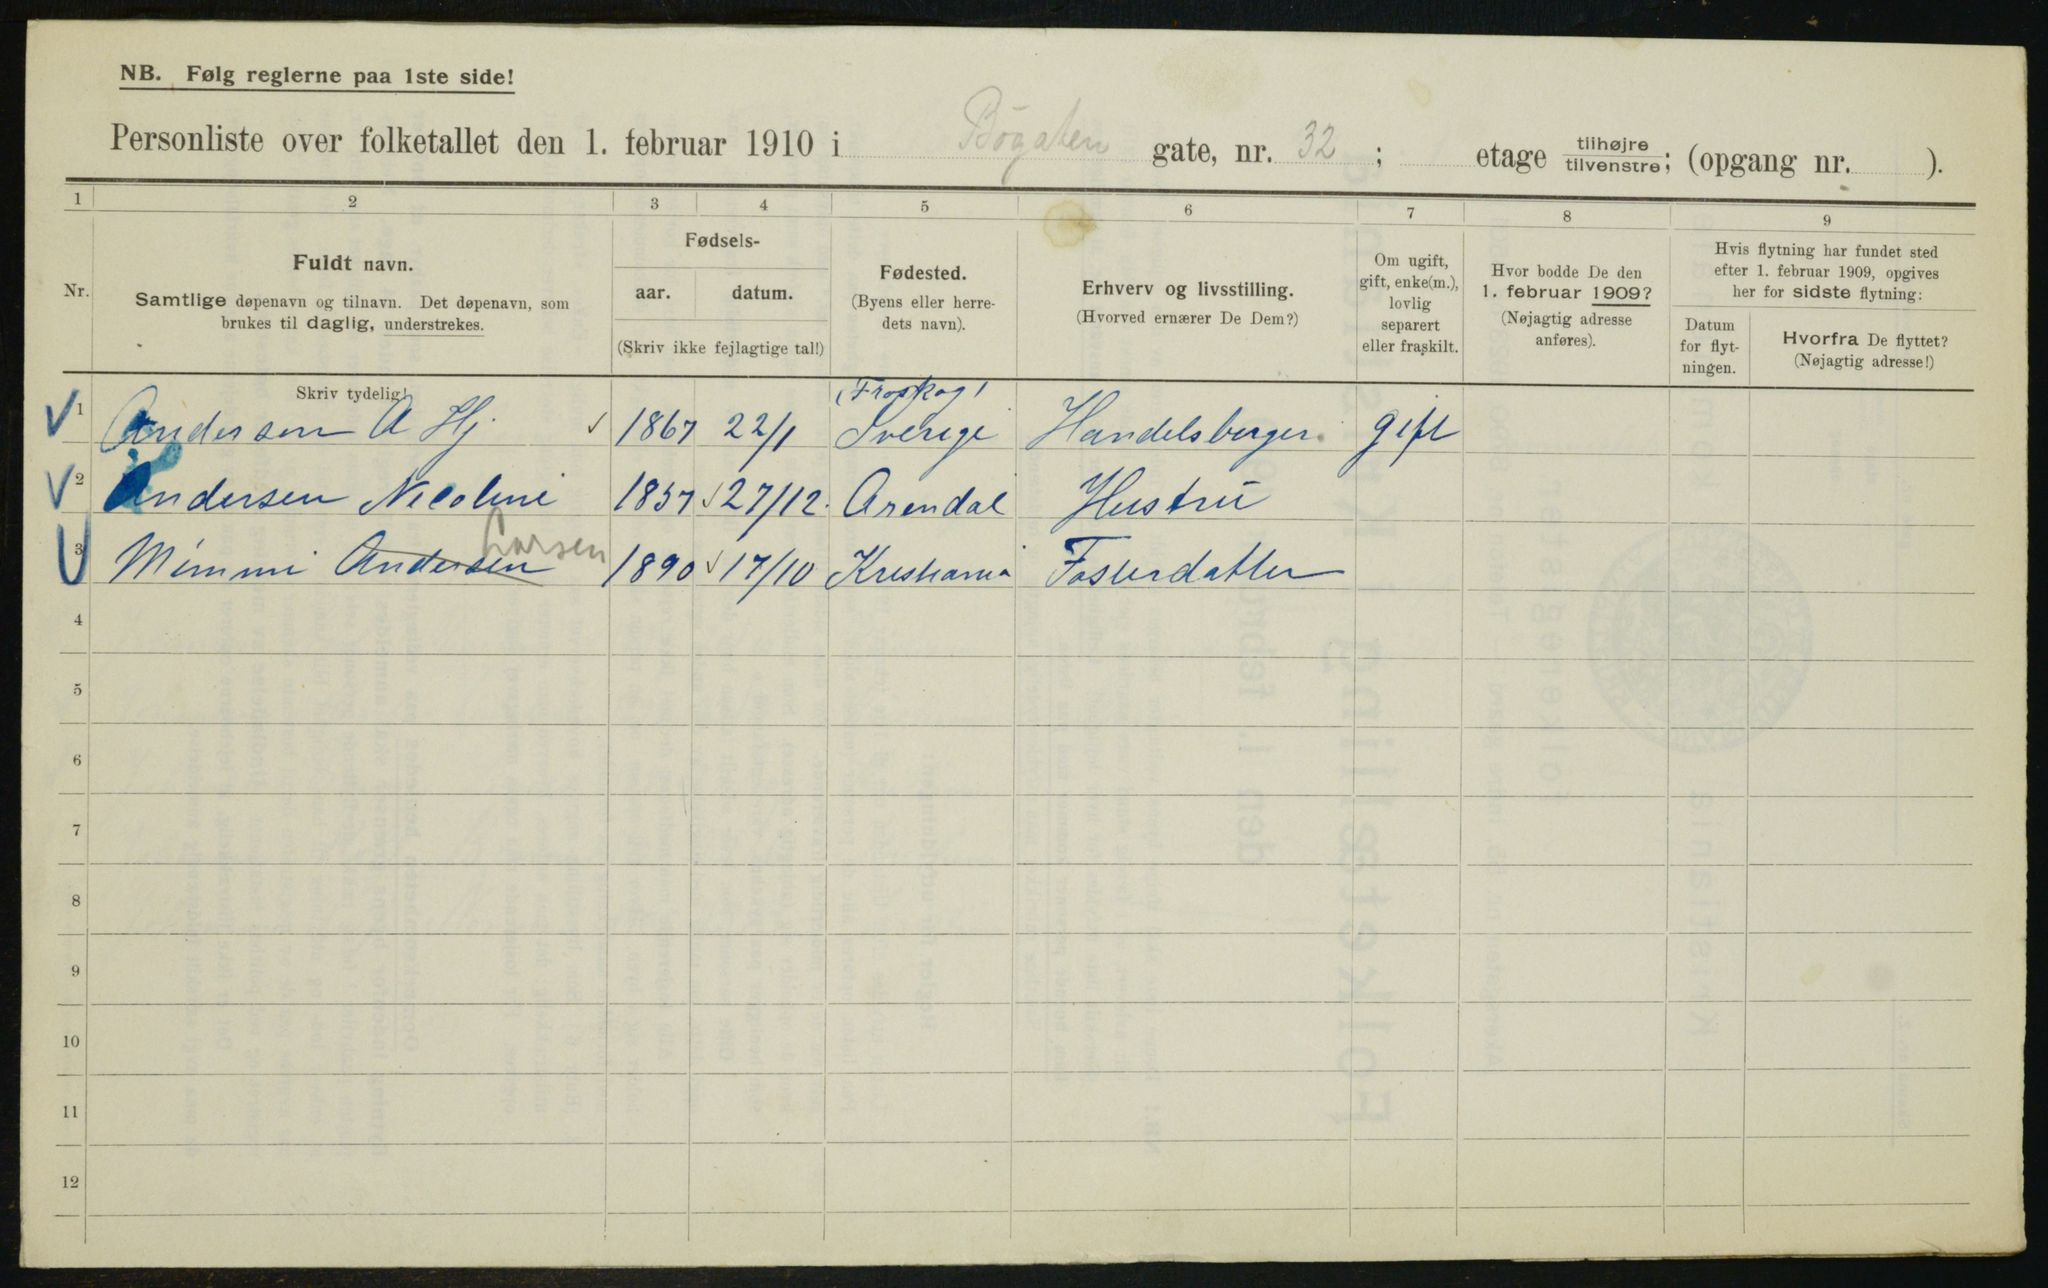 NB. Følg reglerne paa 1ste side!
Personliste over folketallet den 1. februar 1910 i Bøgaten gate, nr. 32 ; etage tilhøjre/tilvenstre; (opgang nr. ).
1 2 3 4 5 6 7 8 9
Nr.
Fuldt navn.
Samtlige døpenavn og tilnavn. Det døpenavn, som
brukes til daglig, understrekes.
Fødsels-
aar. datum.
(Skriv ikke fejlagtige tal!)
Fødested.
(Byens eller herre-
dets navn).
Erhverv og livsstilling.
(Hvorved ernærer De Dem?)
Om ugift,
gift, enke(m.),
lovlig
separert
eller fraskilt.
Hvor bodde De den
1. februar 1909?
(Nøjagtig adresse
anføres).
Hvis flytning har fundet sted
efter 1. februar 1909, opgives
her for sidste flytning:
Datum
for flyt-
ningen.
Hvorfra De flyttet?
(Nøjagtig adresse!)
Skriv tydelig!
(Froskog)
1 Andersen A Hj. 1867 22/1 Sverige Handelsborger. gift
2 Andersen Nicoline 1857 27/12. Arendal Hustru
Larsen
3 Mimmi Andersen 1890 17/10 Kristiania Fosterdatter
4
5
6
7
8
9
10
11
12